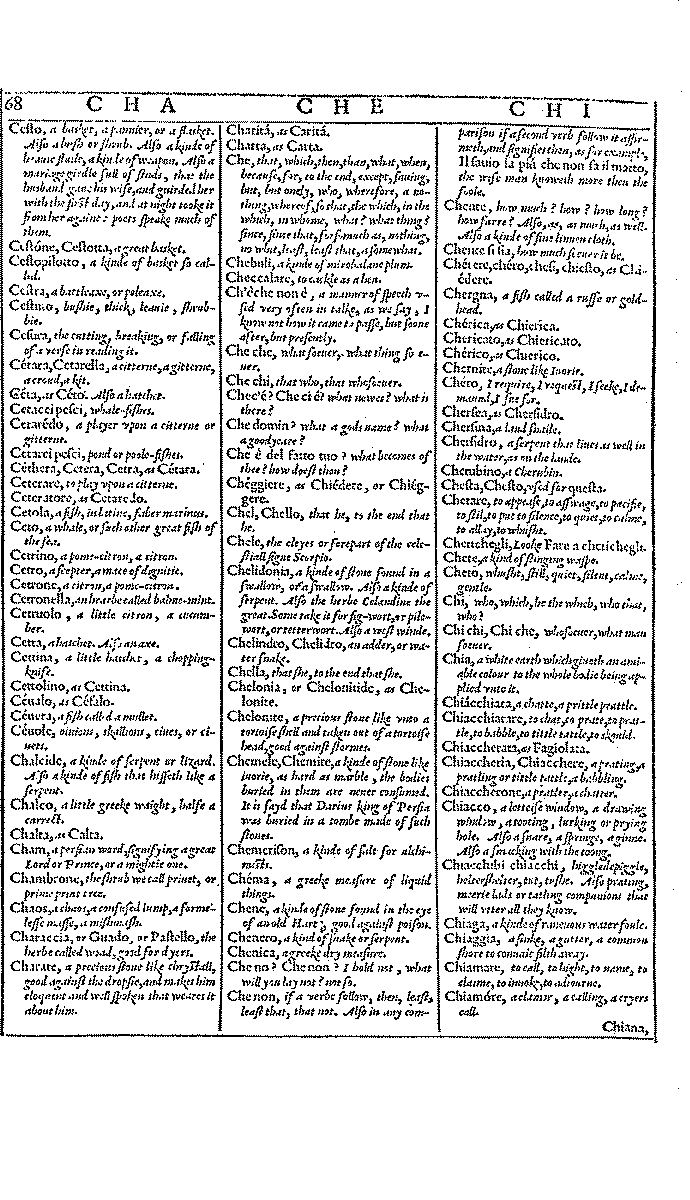 68
C H A
C H E
C H I
Cesto, a basket, a pannier, or a flasket.
Also a brest or shrub. Also a kinde of
Also a
mariage girdle full of studs, that the
husband gave his wife, and guirded her
with the first day, and at night tooke it
from her againe: poets speake much of
them.
Cestóne, Cestotta, a great basket.
Cestopilotto, a kinde of basket so cal-
led.
Cestra, a battleaxe, or poleaxe.
Cestuto, bushie, thick, leauie, shrub-
bie.
Cesura, the cutting, breaking, or falling
of a verse in reading it.
Cétara, Cetarella, a citterne, a gitterne,
a croud, a kit.
Céta, as Céto. Also a hatchet.
Cetacci pesci, whale-fishes.
Cetarédo, a player vpon a citterne or
gitterne.
Cetarei pesci, pond or poole-fishes.
Céthera, Cetera, Cetra, as Cétara.
Ceterare, to play vpon a citterne.
Ceteratore, as Cetaredo.
Cetola, a fish, in latine, faber marinus.
Ceto, a whale, or such other great fish of
the sea.
Cetrino, a pome-citron, a citron.
Cetro, a scepter, a mace of dignitie.
Cetrone, a citron, a pome-citron.
Cetronella, an hearbe called balme-mint.
Cetruolo, a little citron, a cucum-
ber.
Cetta, a hatchet. Also an axe.
Cettina, a little hatchet, a chopping-
knife.
Cettolino, as Cettina.
Céualo, as Céfalo.
Céuera, a fish called a mullet.
Céuole, onions, skallions, ciues, or ci-
uets.
Chalcide, a kinde of serpent or lizard.
Also a kinde of fish that hisseth like a
serpent.
Chalco, a little greeke waight, halfe a
carrett.
Chalta, as Calta.
Cham, a persian word, signifying a great
Lord or Prince, or a mightie one.
Chambrone, the shrub we call priuet, or
prime print tree.
Chaos, a chaos, a confused lump, a forme-
lesse masse, a mishmash.
Characcia, or Guado, or Pastello, the
herbe called woad, good for dyers.
Charate, a precious stone like chrystall,
good against the dropsie, and maketh him
eloquent and well spoken that weares it
about him.
Charitá, as Caritá.
Chatta, as Catta.
Che, that, which, then, than, what, when,
because, for, to the end, except, sauing,
but, but onely, who, wherefore, a no-
thing, whereof, so that, the which, in the
which, in whome, what? what thing?
since, since that, forsomuch as, nothing,
no what, least, least that, a somewhat.
Chebuli, a kinde of mirobalane plum.
Checcalare, to cackle as a hen.
Ch'è che non è, a manner of speech v-
sed very often in talke, as we say, I
know not how it came to passe, but soone
after, but presently.
Che che, what soeuer, what thing so e-
uer.
Che chi, that who, that whosoeuer.
Chec'é? Che ci é? what newes? what is
there?
Che domin? what a gods name? what
a goodyeare?
Che é del fatto tuo? what becomes of
thee? how doest thou?
Chéggiere, as Chiédere, or Chiég-
gere.
Chel, Chello, that he, to the end that
he.
Chele, the cleyes or forepart of the cele-
stiall signe Scorpio.
Chelidonia, a kinde of stone found in a
swallow, or a swallow. Also a kinde of
serpent. Also the herbe Celandine the
great. Some take it for fig-wort, or pile-
wort, or tetterwort. Also a west winde.
Chelindro, Chelidro, an adder, or wa-
ter snake.
Chella, that she, to the end that she.
Chelonia, or Chelonitide, as Che-
lonite.
Chelonite, a precious stone like vnto a
tortoise shell and taken out of a tortoise
head, good against stormes.
Chemele, Chemire, a kinde of stone like
iuorie, as hard as marble, the bodies
buried in them are neuer consumed.
It is sayd that Darius king of Persia
was buried in a tombe made of such
stones.
Chemerison, a kinde of salt for alchi-
mists.
Chéma, a greeke measure of liquid
things.
Chene, a kinde of stone found in the eye
of an old Hart, good against poison.
Chenero, a kind of snake or serpent.
Chenica, a greeke dry measure.
Che no? Che non? I hold not, what
will you lay not? not so.
Che non, if a verbe follow, then, least,
least that, that not. Also in any com-
parison if a second verb follow it affir-
meth, and signifies then, as for example,
Il fauio sa piú che non sa il matto,
the wise man knoweth more then the
foole.
Chente, how much? how? how long?
how farre? Also, as, as much, as well.
Also a kinde of fine linnen cloth.
Chente si sia, how much soeuer it be.
Chérere, chéro, chesi, chiesto, as Chi-
édere.
Chergna, a fish called a ruffe or gold-
head.
Chérica, as Chierica.
Chericato, as Chiericato.
Chérico, as Chierico.
Chernite, a stone like Iuorie.
Chéro, I require, I request, I seeke, I de-
maund, I sue for.
Chersea, as Chersidro.
Chersina, a land snaile.
Chersidro, a serpent that liues as well in
the water, as on the lande.
Cherubino, a Cherubin.
Chesta, Chesto, vsed for questa.
Chetare, to appease, to asswage, to pacifie,
to still, to put to silence, to quiet, to calme,
to allay, to whosht.
Chetichegli, Looke Fare a chetichegli.
Chete, a kind of stinging waspe.
Cheto, whosht, still, quiet, silent, calme,
gentle.
Chi, who, which, he the which, who that,
who?
Chi chi, Chi che, whosoeuer, what man
soeuer.
Chia, a white earth which giueth an ami-
able colour to the whole bodie being ap-
plied vnto it.
Chiácchiata, a chatte, a prittle prattle.
Chiacchiarare, to chat, to prate, to prat-
tle, to babble, to tittle tattle, to skould.
Chiaccherata, as Fagiolata.
Chiaccheria, Chiacchere, a prating, a
pratling or tittle tattle, a babbling.
Chiaccherone, a pratler, a chatter.
Chiacco, a letteise window, a drawing
window, a tooting, lurking or prying
hole. Also a snare, a springe, a ginne.
Also a smacking with the toong.
Chiacchibi chiacchi, higgledepiggle,
helterskelter, tut, tushe. Also prating,
meerie lads or tatling companions that
will vtter all they know.
Chiaga, a kinde of rauenous water foule.
Chiaggia, a sinke, a gutter, a common
shore to conuaie filth away.
Chiamare, to call, to hight, to name, to
claime, to inuoke, to adiourne.
Chiamóre, a clamor, a calling, a cryers
call.
Chiana,